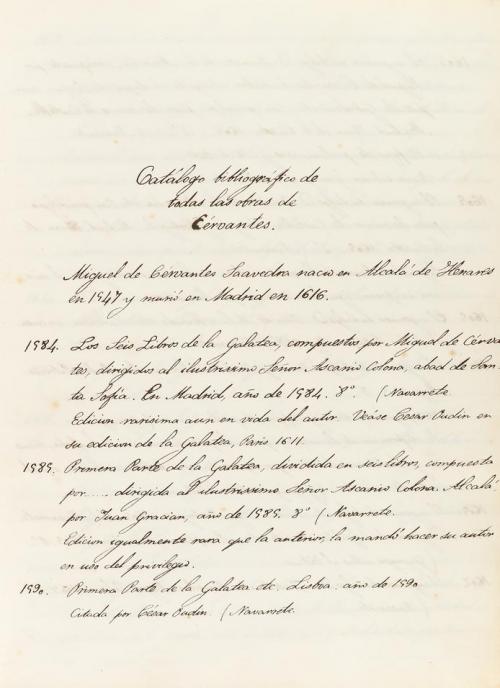 Catálogo bibliográfico de
todas las obras de
Cérvantes.
Miguel de Cérvantes Saavedra nació en Alcalá de Henares
en 1547 y murió en Madrid en 1616.
1584. Los Seis Libros de la Galatea, compuestos por Miguel de Cérvan-
tes, dirigidos al ilustrisimo Señor Ascanio Colona, abad de San-
ta Sofía. En Madrid, año de 1584. 8º. (Navarrete.
Edicion rarisima aun en vida del autor. Veáse César Oudin en
su edicion de la Galatea, Paris 1611.
1585. Primera Parte de la Galatea, dividida en seis libros, compuesta
por.... dirigida al ilustrissimo Señor Ascanio Colona. Alcalá
por Juan Gracian, año de 1585. 8º (Navarrete.
Edicion igualmente rara que la anterior, la mandó hacer su autor
en uso del privilegio.
1590. Primera Parte de la Galatea etc. Lisboa. año de 1590
Citada por César Oudin. (Navarrete.